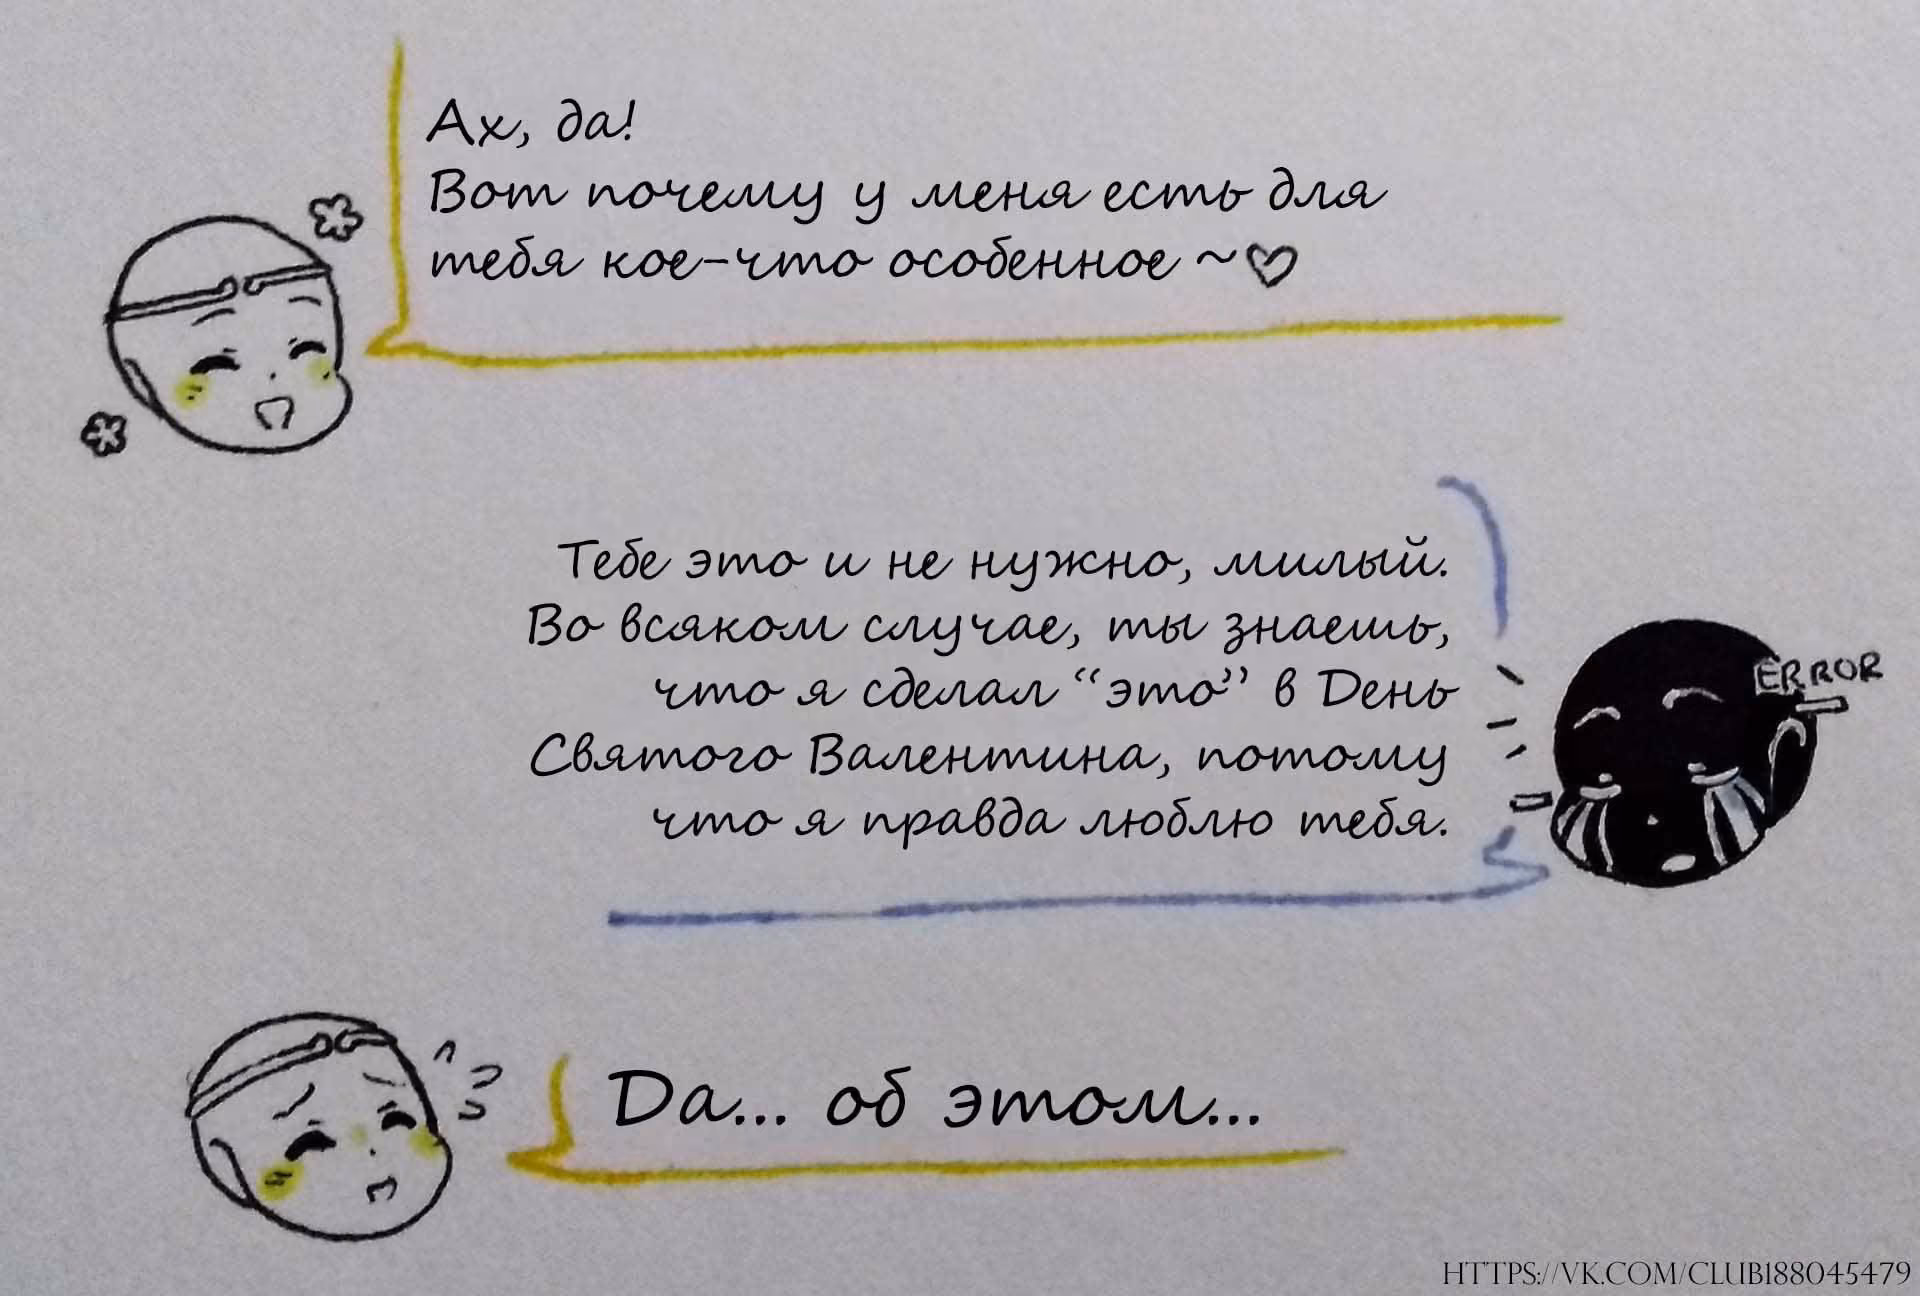 Ах, да!
Вот почему у меня есть для
тебя кое-что особенное ~♡
Тебе это и не нужно, милый.
Во всяком случае, ты знаешь,
что я сделал “это” в День
Святого Валентина, потому
что я правда люблю тебя.
ERROR
Да... об этом...
HTTPS://VK.COM/CLUB188045479